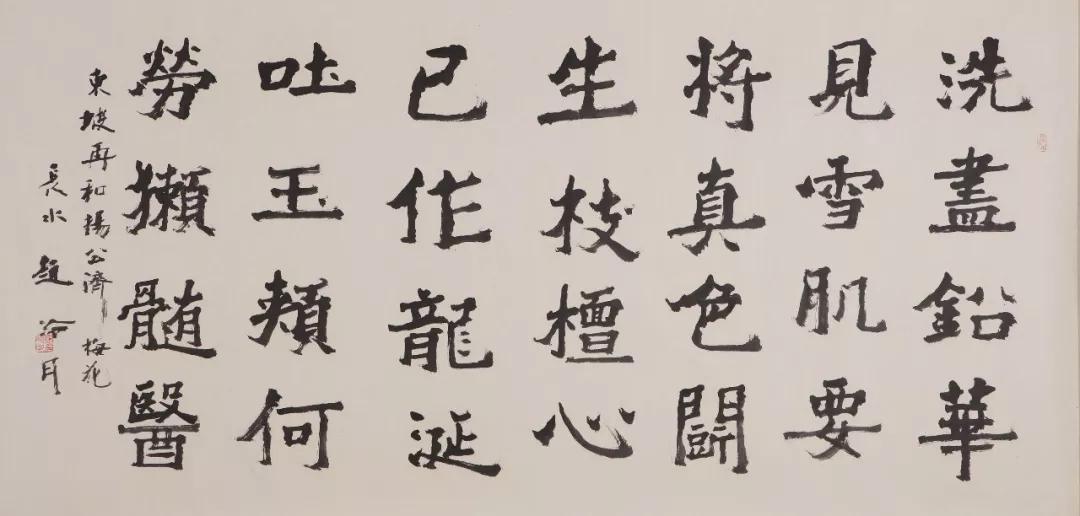 洗盡鉛華
見雪肌要
將真色鬭
生枝檀心
已作龍涎
吐玉頰何
勞獺髓醫
東坡再和楊公濟梅花
長水 趙冷月